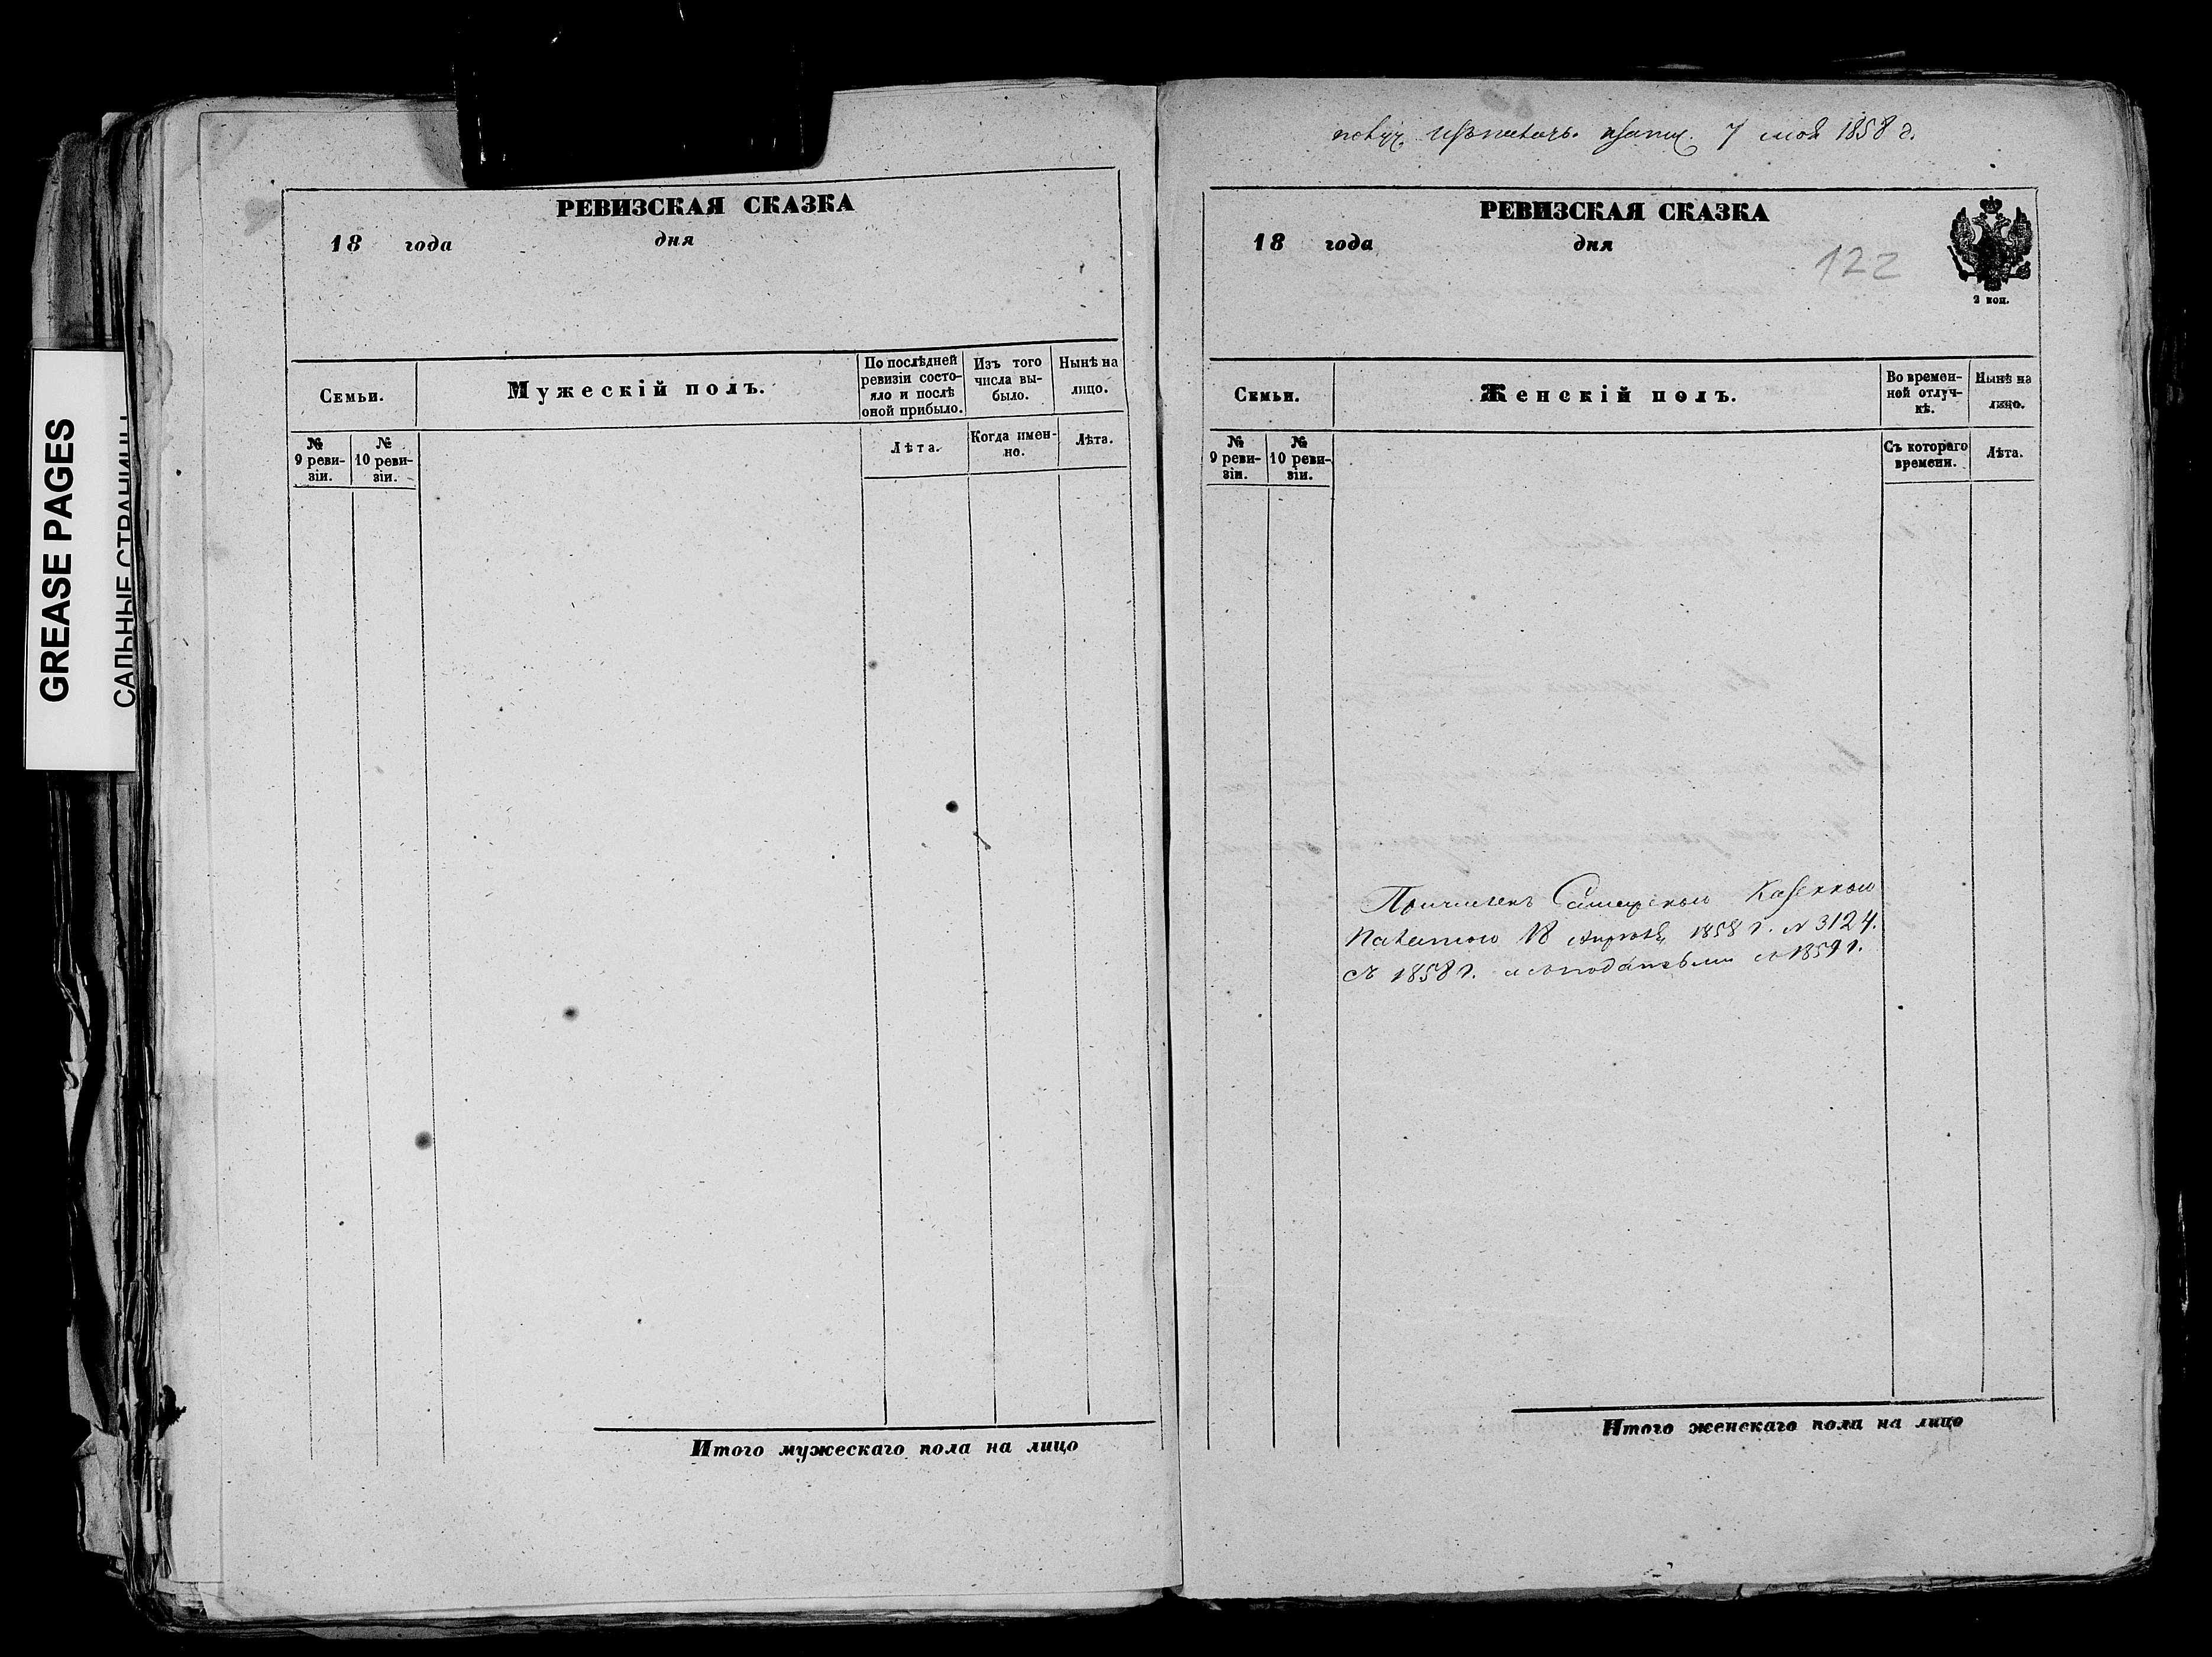 GREASE PAGES
САЛЬНЫЕ СТРАНИЦЫ
РЕВИЗСКАЯ СКАЗКА
18 года дня
Семьи.
Мужескій полъ.
По послѣдней ревизіи состо-
яло и послѣ
оной прибыло.
Изъ того
числа вы-
было.
Нынѣ на
лицо.
№
9 реви-
зіи.
№
10 реви-
зіи.
Лѣта.
Когда имен-
но.
Лѣта.
Итого мужескаго пола на лицо
7 мая 1858 г.
РЕВИЗСКАЯ СКАЗКА
18 года дня
122
2 коп.
Семьи.
Женскій полъ.
Во времен-
ной отлуч-
кѣ.
Нынѣ на
лицо.
№
9 реви-
зіи.
№
10 реви-
зіи.
Съ котораго
времени.
Лѣта.
Причисленъ Самарскою Казенною
Палатою 18 апрѣля 1858 г. № 3124.
съ 1858 г. 1859 г.
Итого женскаго пола на лицо